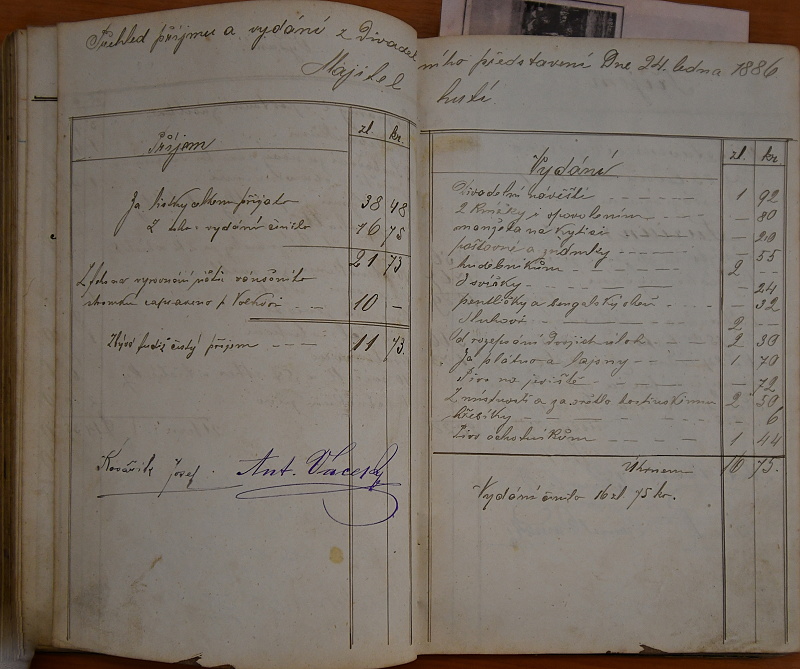 Přehled příjmu a vydání z Divadelního představení Dne 24. ledna 1886
Majitel hustí.
Příjem zl. kr.
Za lístky celkem přijato 38 48
Z toho vydání činilo 16 75
21 73
10 —
Zbývá tudiž čistý příjem 11 73.
Kovářík Josef. Ant. Vacek
Vydání zl. kr.
Divadelní návěští 1 92
2 Knížky s povolením — 80
manžeta na Kytici — 20
poštovné a známky — 55
hudebníkům 2 —
3 svíčky — 24
pentličky a bengalský oheň — 32
2 —
Od rozepsání dvojich úloh 2 30
Za plátno a lapny 1 70
Pivo na jeviště — 72
Z místnosti a za světlo hostinskému 2 50
hřebíky — 6
Pivo ochotníkům 1 44
Úhrnem 16 75.
Vydání činilo 16 zl. 75 kr.